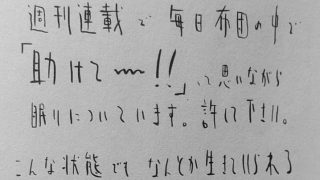 週刊連載で毎日布団の中で
「助けて〜〜!!」って思いながら
眠りについています。許して下さい。
こんな状態でもなんとか生きていられる